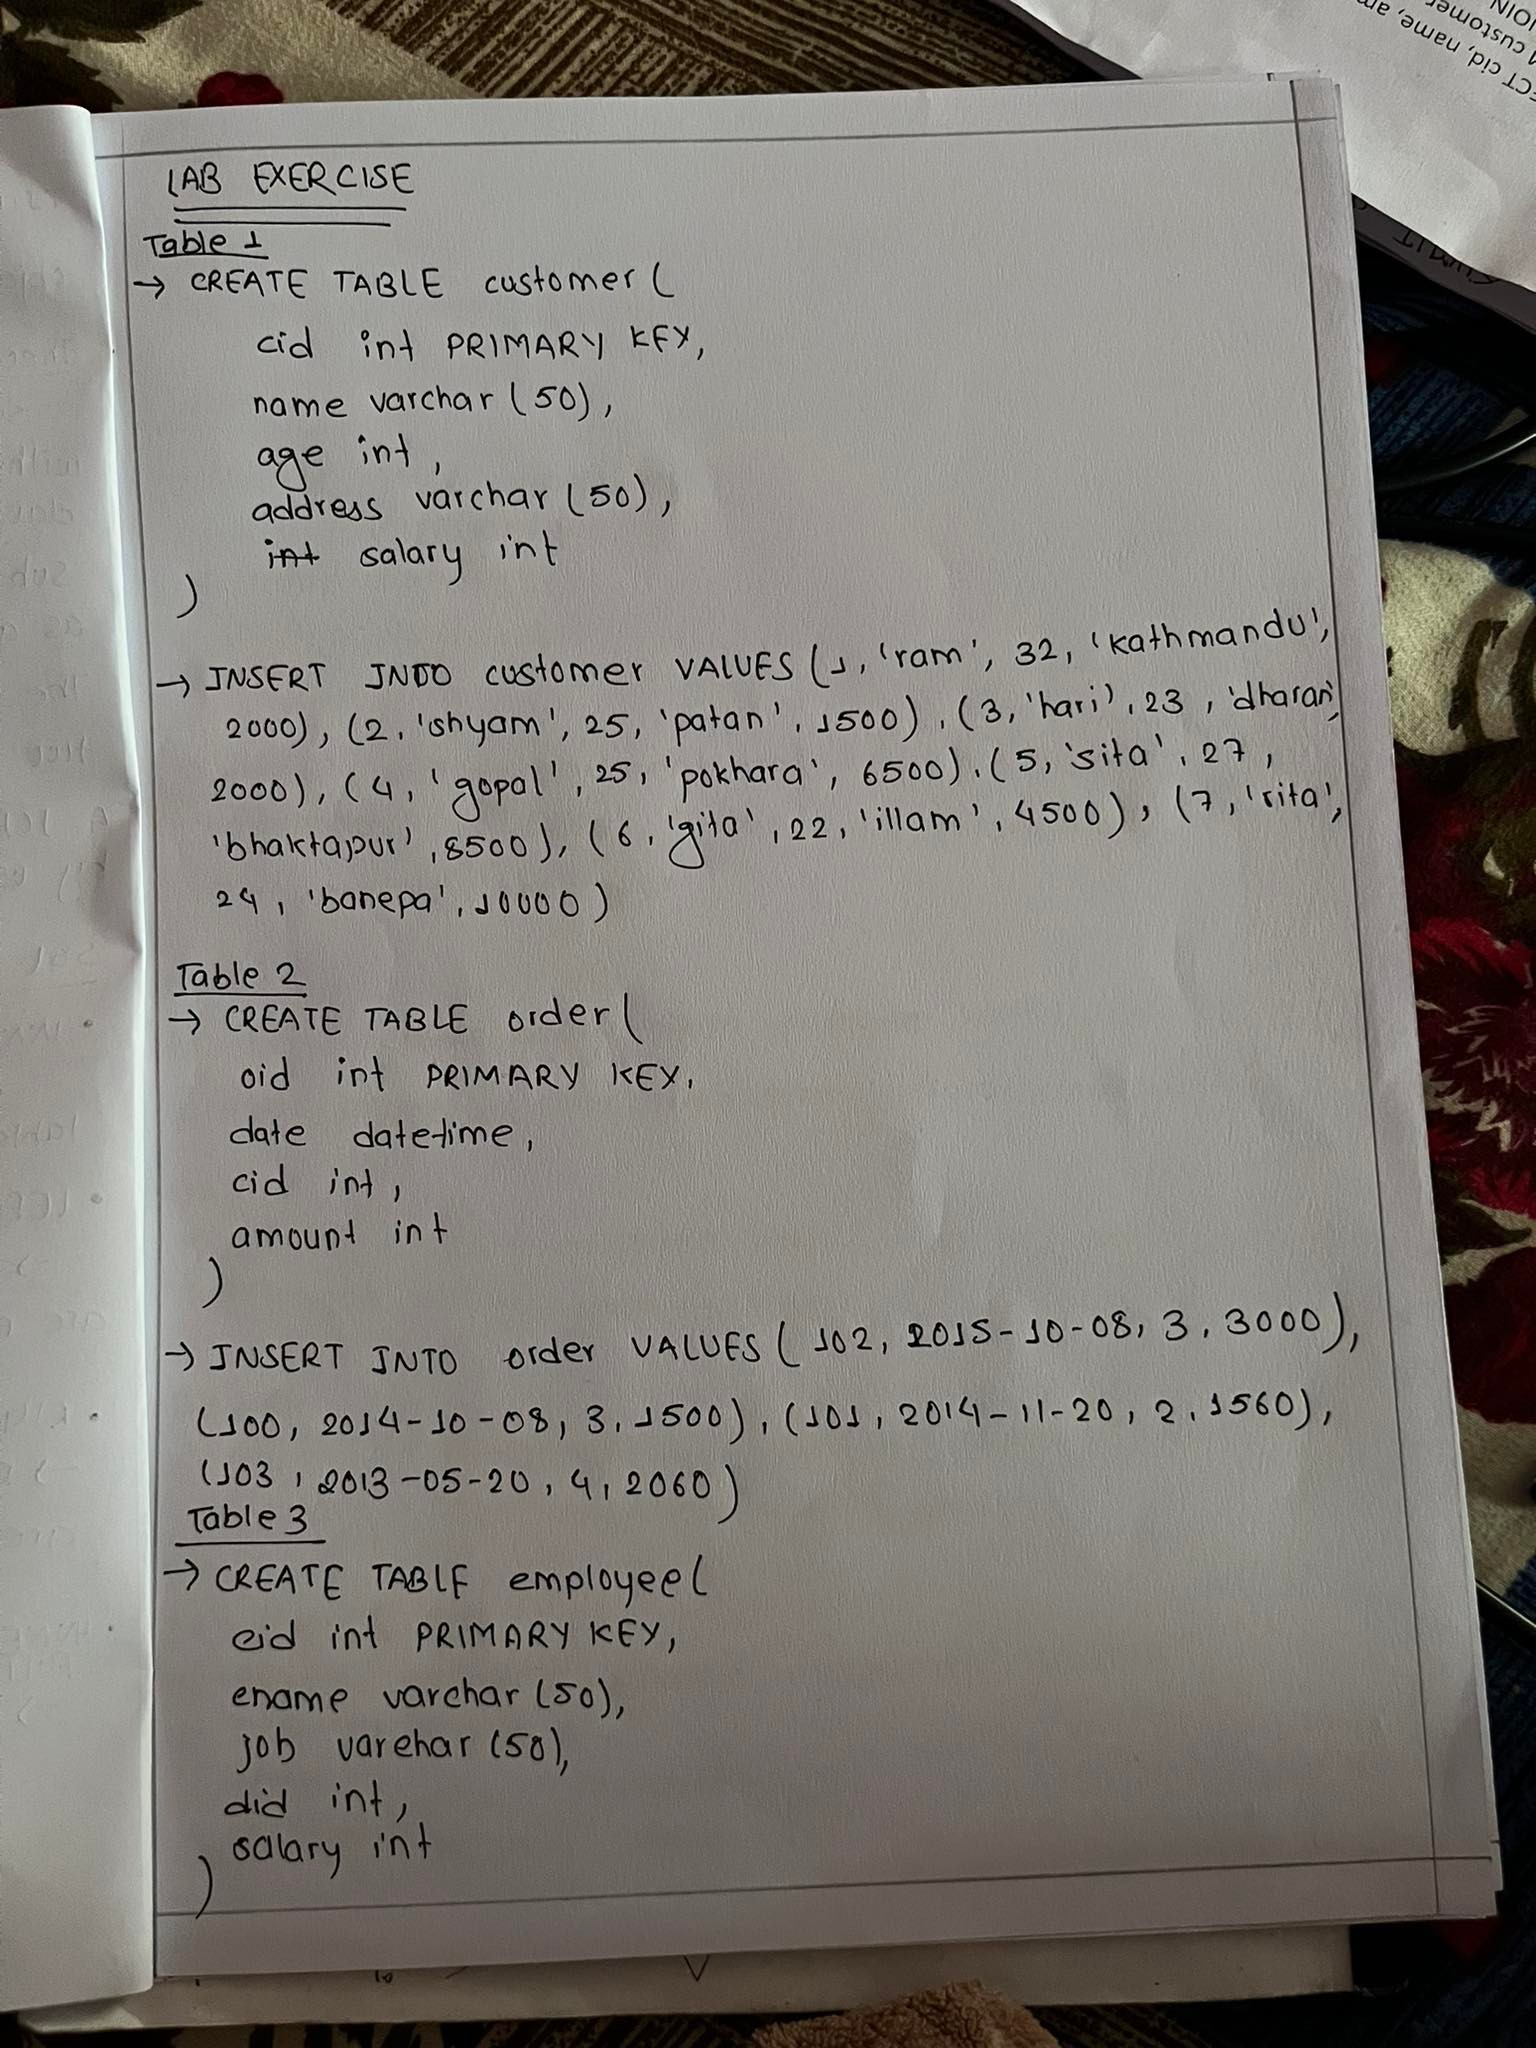 LAB EXERCISE
Table 1
→ CREATE TABLE customer (
cid int PRIMARY KEY,
name varchar (50),
age int,
address varchar (50),
int salary int
)
→ INSERT INTO customer VALUES (1, 'ram', 32, 'kathmandu',
2000), (2, 'shyam', 25, 'patan', 1500), (3, 'hari', 23, 'dharan',
2000), (4, 'gopal', 25, 'pokhara', 6500), (5, 'sita', 27,
'bhaktapur', 8500), (6, 'gita', 22, 'illam', 4500), (7, 'rita',
24, 'banepa', 10000)
Table 2
→ CREATE TABLE order (
oid int PRIMARY KEY,
date datetime,
cid int,
amount int
)
→ INSERT INTO order VALUES (102, 2015-10-08, 3, 3000),
(100, 2014-10-08, 3, 1500), (101, 2014-11-20, 2, 1560),
(103, 2013-05-20, 4, 2060)
Table 3
→ CREATE TABLE employee (
eid int PRIMARY KEY,
ename varchar (50),
job varchar (50),
did int,
salary int
)
JOIN
customer
ECT cid, name, am